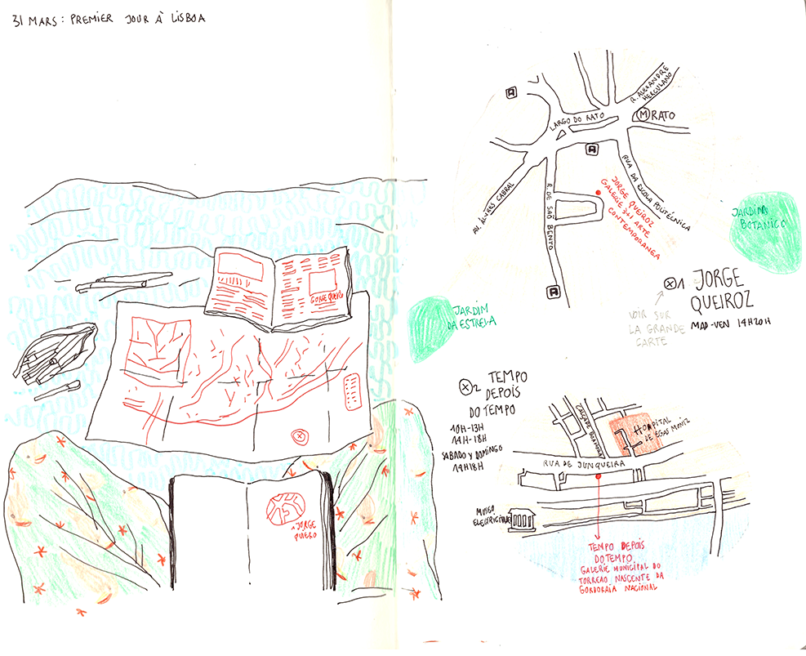 31 MARS : PREMIER JOUR À LISBOA
GONE QUEIRO
1 JORGE
QUIERO
R. ALEXANDRE
HERCULANO
LARGO DO RATO
M RATO
AV. ALVARES CABRAL
R. DE SAO BENTO
RUA DA ESCOLA POLITÉCNICA
JORGE QUEIROZ
GALERIE DOI ARTE
CONTEMPORANEA
JARDIM
BOTANICO
JARDIM
DA ESTRELA
X1 JORGE
QUEIROZ
MAR-VEN 14H20H
VOIR SUR
LA GRANDE
CARTE
X2 TEMPO
DEPOIS
DO TEMPO
10H-13H
14H-18H
SABADO Y DOMINGO
14H18H
HOSPITAL
DE EGAS MONIZ
RUA DE JUNQUEIRA
TEMPO DEPOIS
DO TEMPO
GALERIE MUNICIPAL DO
TORREAO NASCENTE DA
CORDOARIA NACIONAL